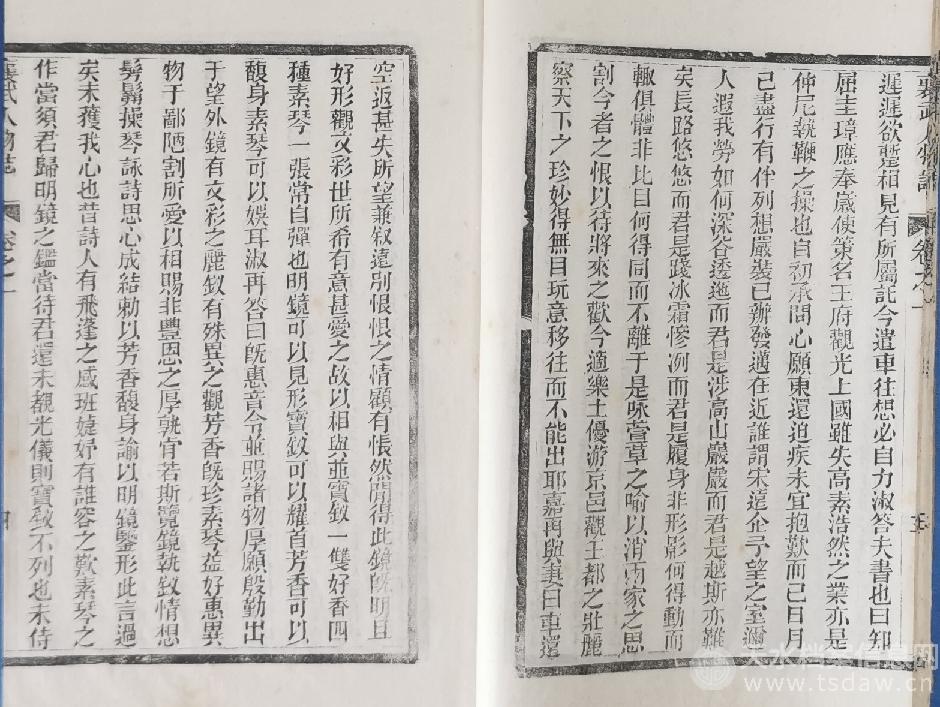 遲遲欲蹔相見有所屬託今遣車往想必自力淑答夫書也曰知
屈圭璋應奉嵗使策名王府觀光上國雖失高素浩然之業亦是
仲尼執鞭之操也自初承問心願東還迫疾未宜抱歎而已日月
已盡行有伴列想嚴裝已辦發邁在近誰謂宋遠企予望之室邇
人遐我勞如何深谷逶迤而君是涉高山巖巖而君是越斯亦難
矣長路悠悠而君是踐冰霜慘冽而君是履身非形影何得動而
輙俱體非比目何得同而不離于是咏萱草之喻以消兩家之思
割今者之恨以待將來之歡今適樂土優游京邑觀王都之壯麗
察天下之珍妙得無目玩意移往而不能出耶嘉再與其曰車還
空返甚失所望兼叙遠别恨恨之情顧有悵然間得此鏡旣明且
好形觀文彩世所希有意甚愛之故以相與並寶釵一雙好香四
種素琴一張常自彈也明鏡可以見形寶釵可以耀首芳香可以
馥身素琴可以娛耳淑再答曰旣惠音令並賜諸物厚願殷勤出
于望外鏡有文彩之麗釵有殊異之觀芳香旣珍素琴益好惠異
物于鄙陋割所愛以相賜非豐恩之厚孰肯若斯覽鏡執釵情想
髣髴操琴詠詩思心成結勑以芳香馥身諭以明鏡鑒形此言過
矣未獲我心也昔詩人有飛蓬之感班婕妤有誰容之歎素琴之
作當須君歸明鏡之鑑當待君還未覩光儀則寶釵不列也未侍
襄武人物志
卷之一
四
襄武人物志
卷之一
天水档案信息网
www.tsdaw.cn